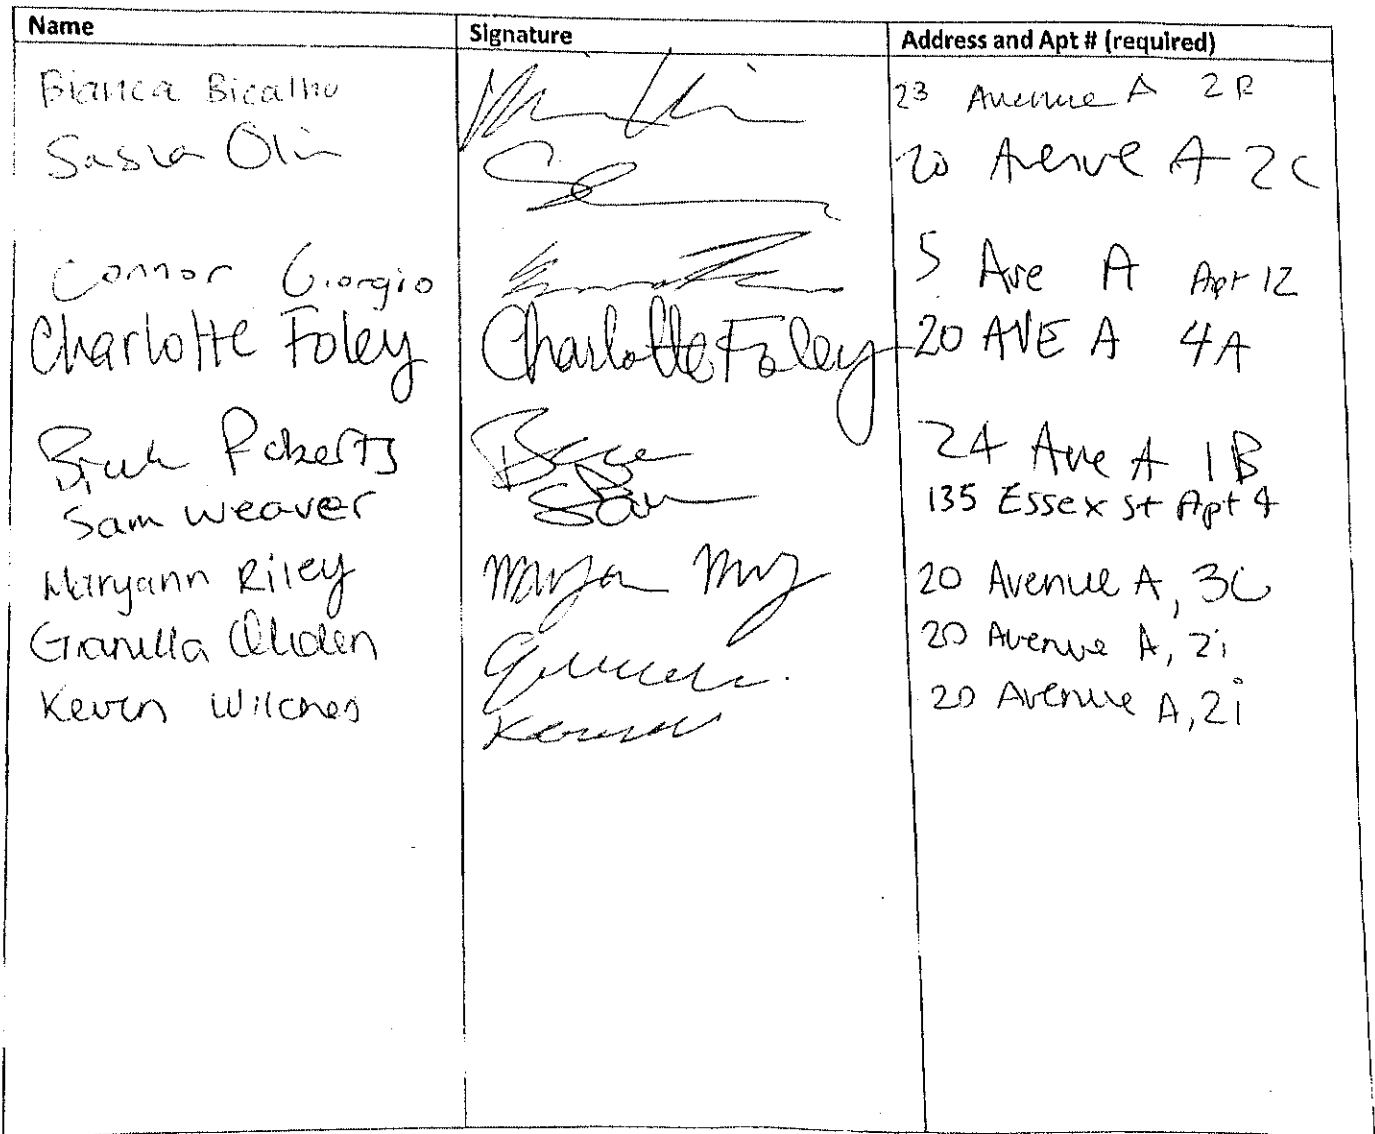 Name Signature Address and Apt # (required)
Bianca Bicalho 23 Avenue A 2B
Sasha Olin 20 Avenue A 2C
Connor Giorgio 5 Ave A Apt 12
Charlotte Foley Charlotte Foley 20 AVE A 4A
Roberts 24 Ave A 1B
Sam Weaver Sam 135 Essex St Apt 4
Maryann Riley 20 Avenue A, 3C
20 Avenue A, 2i
Keven Wilches 20 Avenue A, 2i